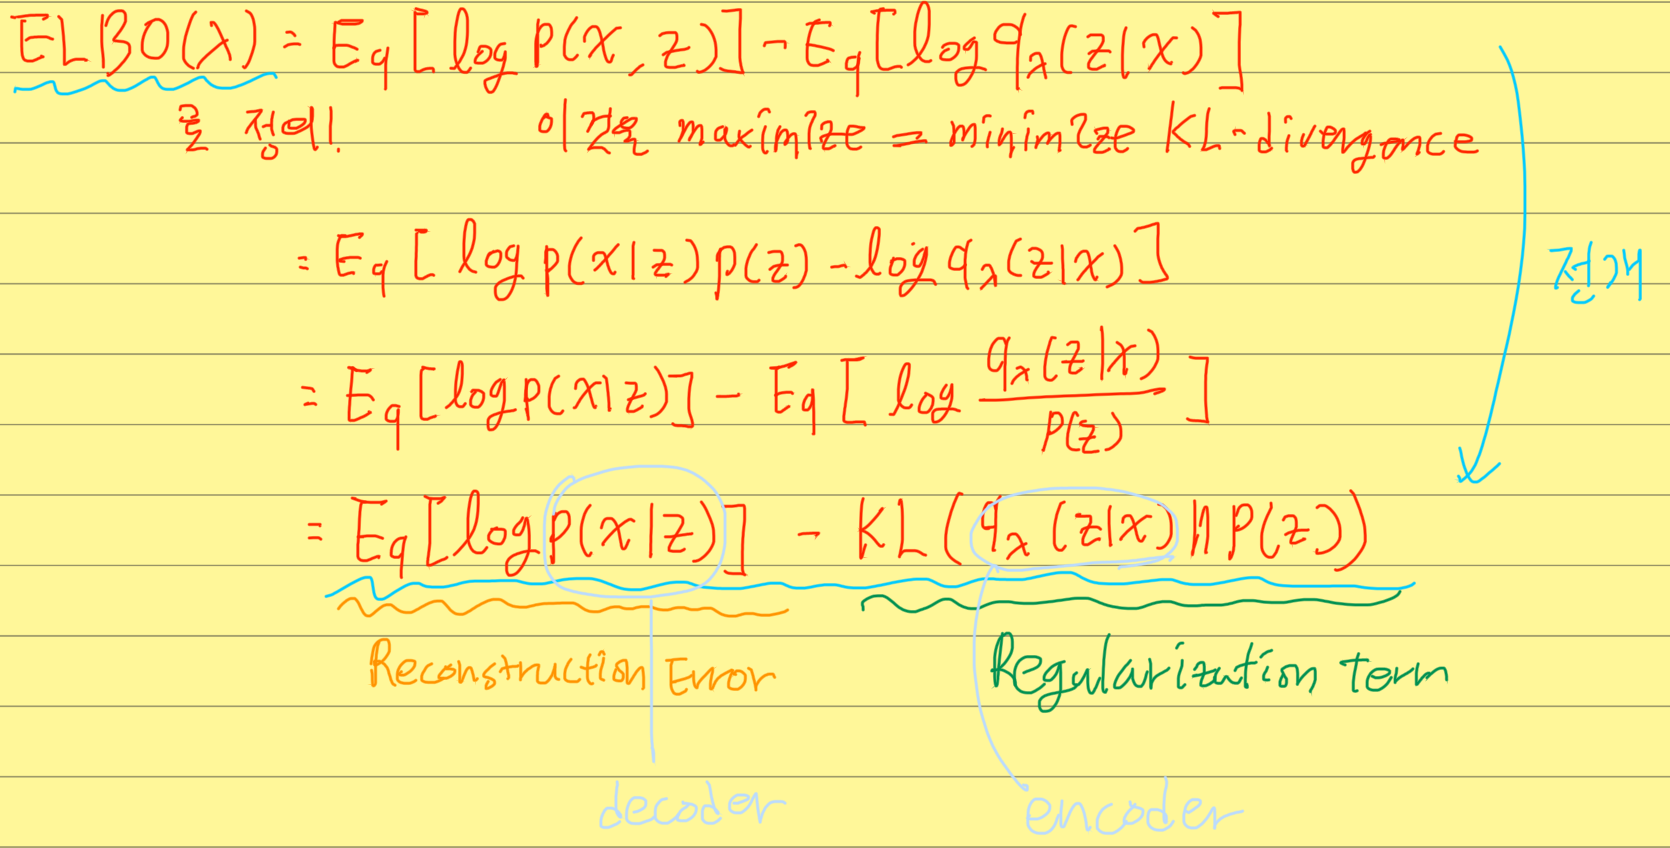 ELBO(λ) = Eq[log p(x, z)] - Eq[log qλ(z|x)]
로 정의! 이것을 maximize = minimize KL-divergence
= Eq[log p(x|z)p(z) - log qλ(z|x)]
전개
= Eq[log p(x|z)] - Eq[log qλ(z|x) / p(z)]
= Eq[log p(x|z)] - KL(qλ(z|x) || P(z))
Reconstruction Error Regularization term
decoder encoder